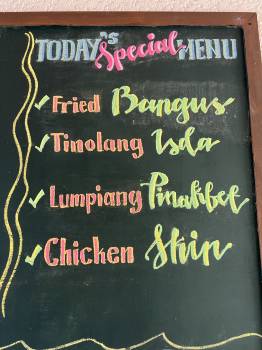 TODAY'S Special MENU
✓ Fried Bangus
✓ Tinolang Isda
✓ Lumpiang Pinakbet
✓ Chicken Skin